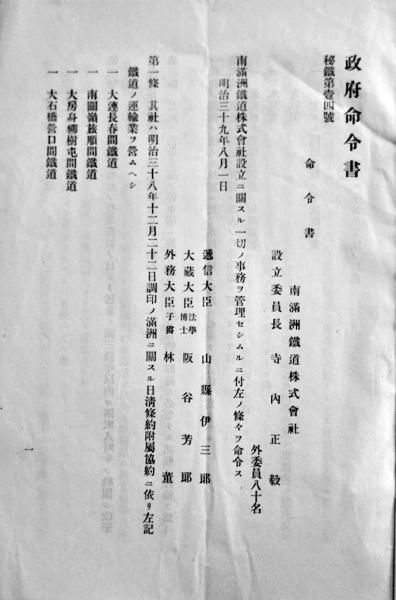 政府命令書
秘鐵第壹四號
命令書
南滿洲鐵道株式會社
設立委員長 寺內正毅
外委員八十名
南滿洲鐵道株式會社設立ニ關スル一切ノ事務ヲ管理セシムルニ付左ノ條々ヲ命令ス
明治三十九年八月一日
遞信大臣 山縣伊三郎
大藏大臣 法學博士 阪谷芳郎
外務大臣 子爵 林董
第一條 其社ハ明治三十八年十二月二十二日調印ノ滿洲ニ關スル日淸條約附屬協約ニ依リ左記
鐵道ノ運輸業ヲ營ムヘシ
一 大連長春間鐵道
一 南關嶺旅順間鐵道
一 大房身柳樹屯間鐵道
一 大石橋營口間鐵道
一